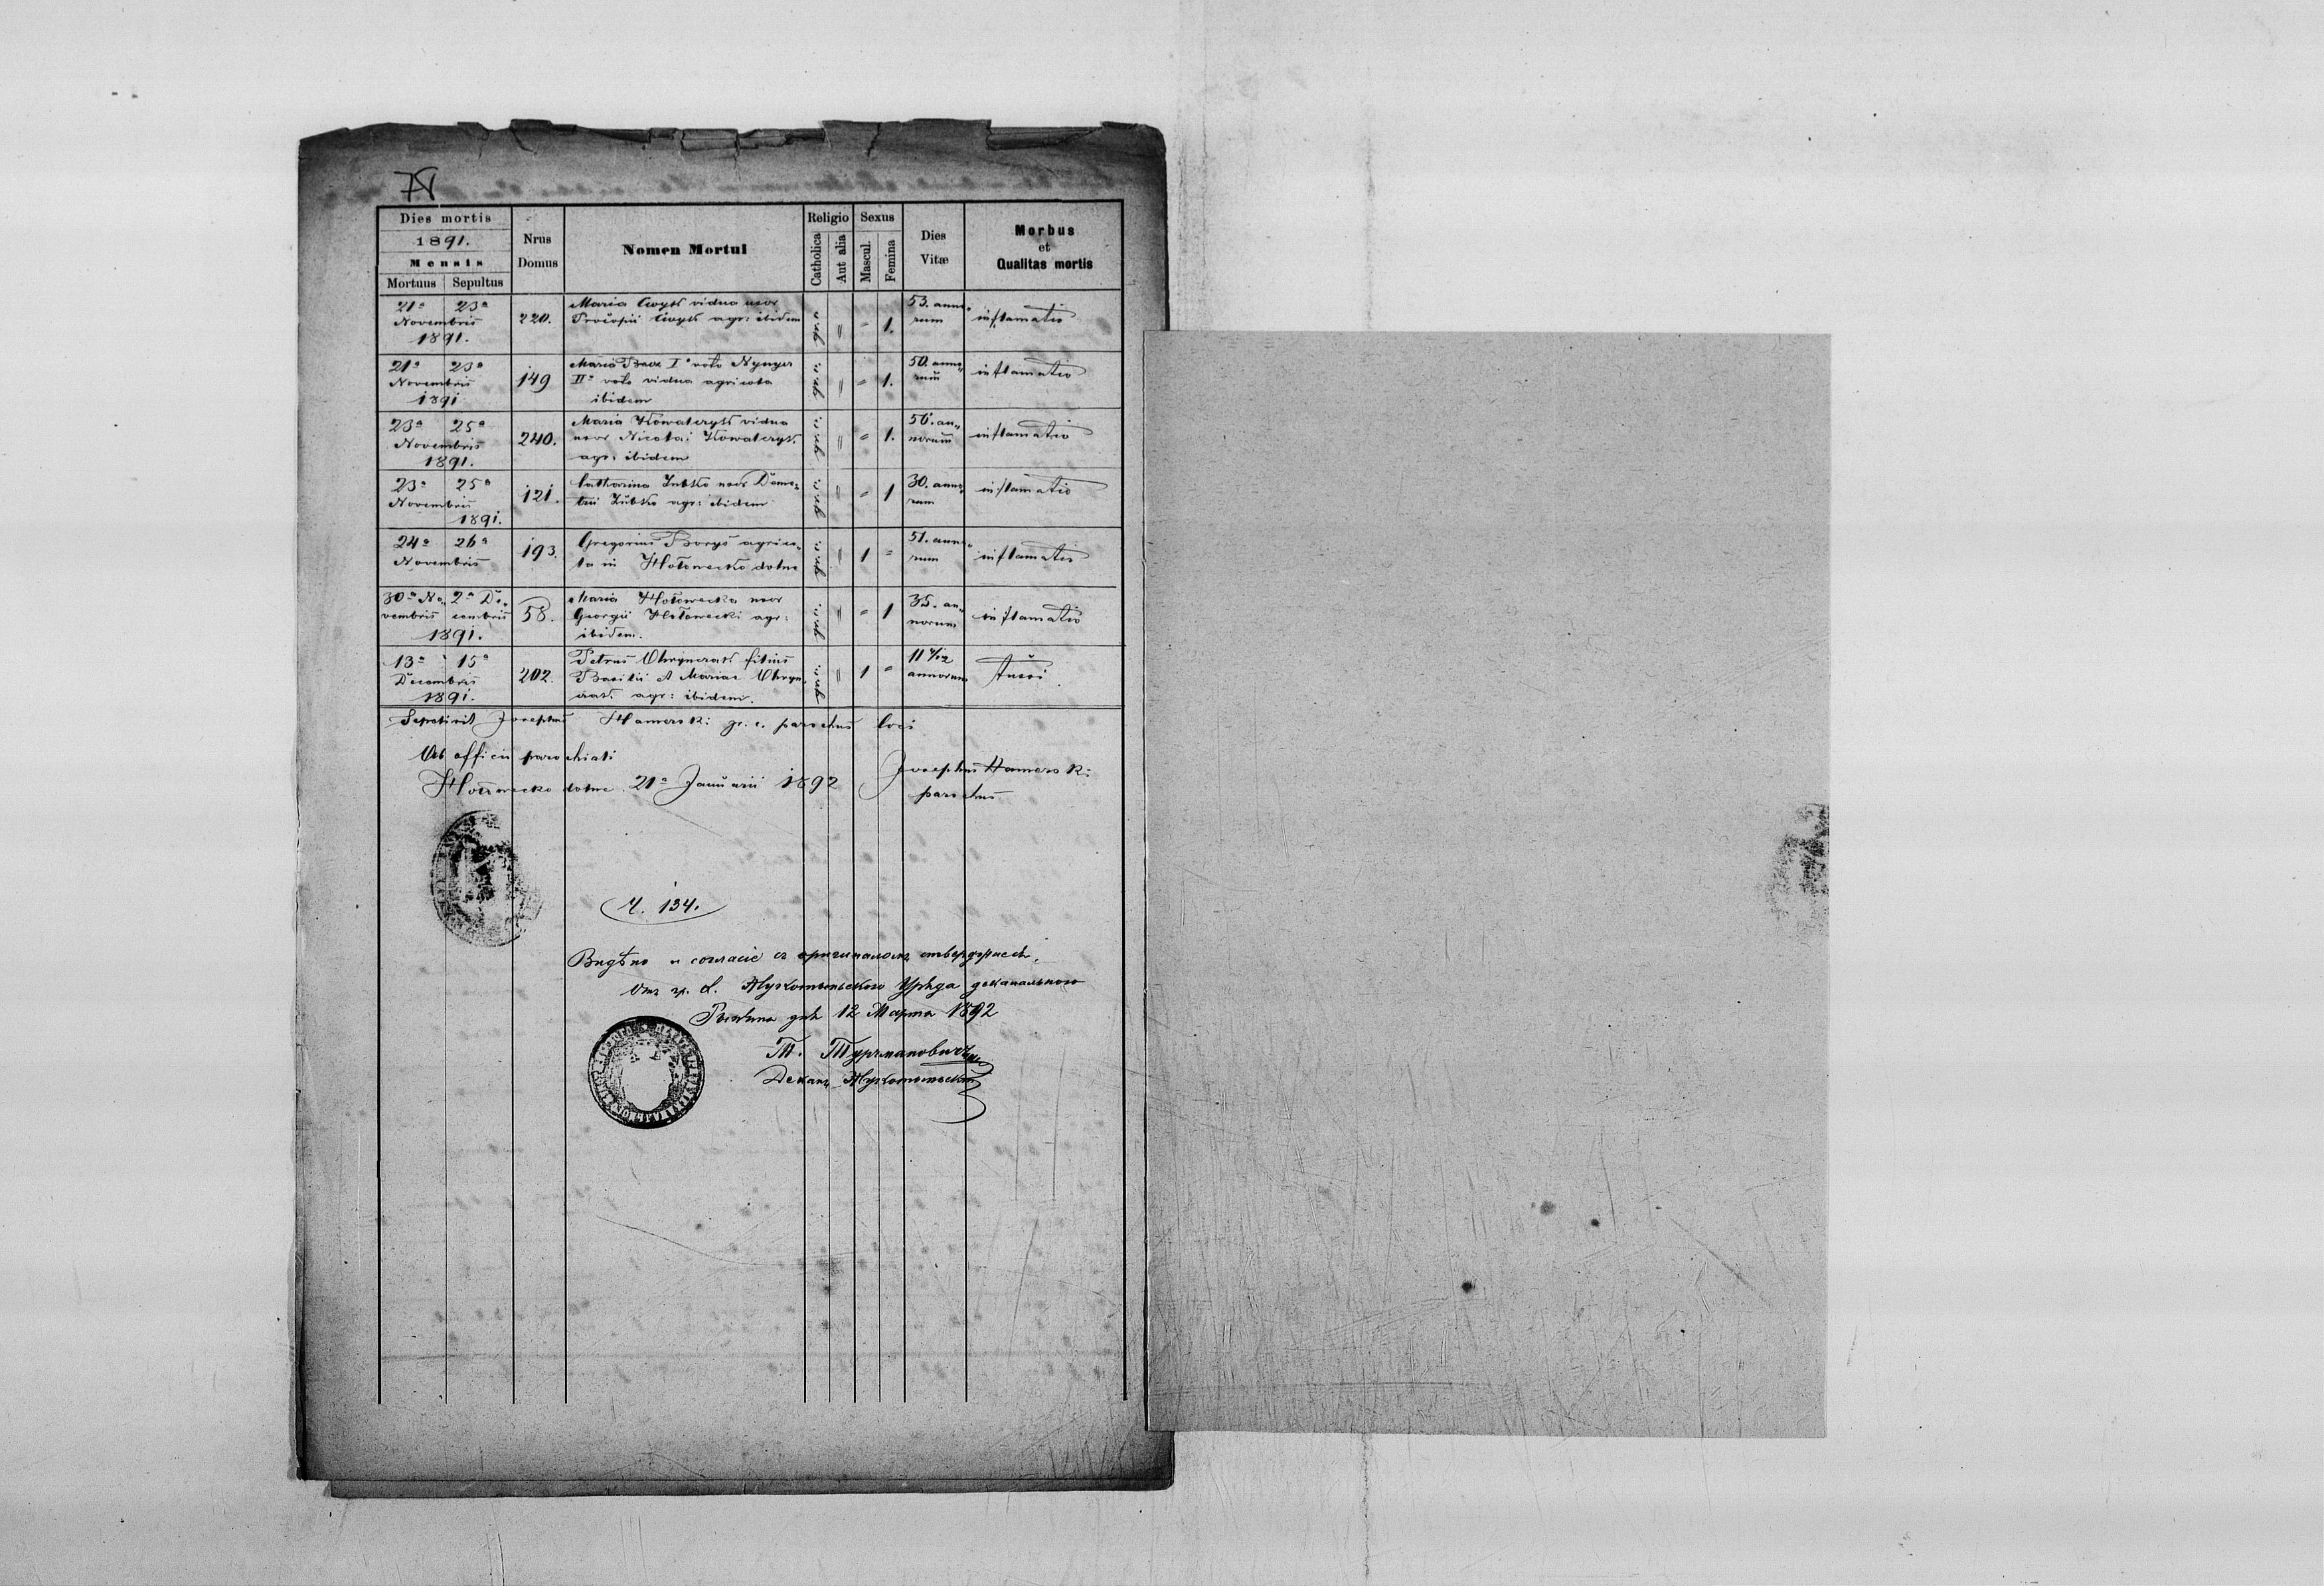 78
Dies mortis
1891.
Mensis
Mortuus Sepultus
Nrus Domus
Nomen Mortui
Religio
Catholica
Aut alia
Sexus
Mascul.
Femina
Dies Vitæ
Morbus
et
Qualitas mortis
21a 23a Novembris 1891. 220. Maria vidua uxor
agr: ibidem gr.c. " = 1. 53. annorum inflamatio
21a 23a Novembris 1891 149 Maria Io voto
IIo voto vidua agricola
ibidem gr.c. " = 1. 50. annorum inflamatio
23a 25a Novembris 1891. 240. Maria Kowalczyk vidua
uxor Nicolai Kowalczyk
agr: ibidem gr.c. " = 1. 56. annorum inflamatio
23a 25a Novembris 1891. 121. Catharina Zubko uxor Deme-
trii Zubko agr: ibidem gr.c. " = 1 30. annorum inflamatio
24a 26a Novembris 193. Gregorius Borys agrico-
la in Hołowecko dolne gr.c. " 1 = 51. annorum inflamatio
30a Novembris 2a Decembris 1891. 58. Maria Hołowecka uxor
Georgii Hołowecki agr:
ibidem. gr.c. " = 1 35. annorum inflamatio
13a 15a Decembris 1891. 202. Petrus Uhrynczak filius
Basilii et Mariae Uhryn-
czak agr: ibidem. gr.c. " 1 = 11 annorum tussi
Sepelivit Josephus Hamerski gr. c. parochus loci
Ab officii parochiali
Hołowecko dolne 21a Januarii 1892
Josephus Hamerski
parochus
Ч. 134.
Видѣно и согласіе съ оригиналомъ
Отъ гр. Жукотыньского Уряда деканального
дня 12 Марта 1892
Т. Турчмановичъ
Деканъ Жукотыньскій